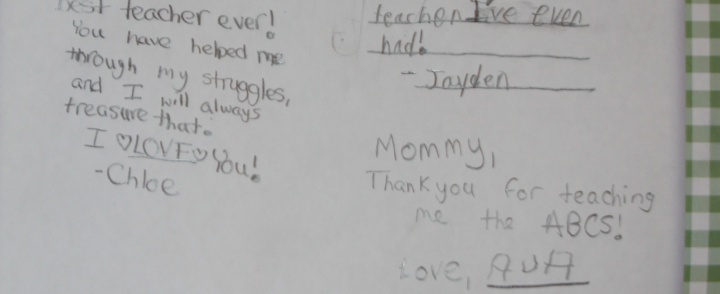 best teacher ever!
You have helped me
through my struggles,
and I will always
treasure that.
I ♡LOVE♡ You!
-Chloe
teacher I've even
had!
- Jayden
Mommy,
Thank you for teaching
me the ABCS!
Love, AVA